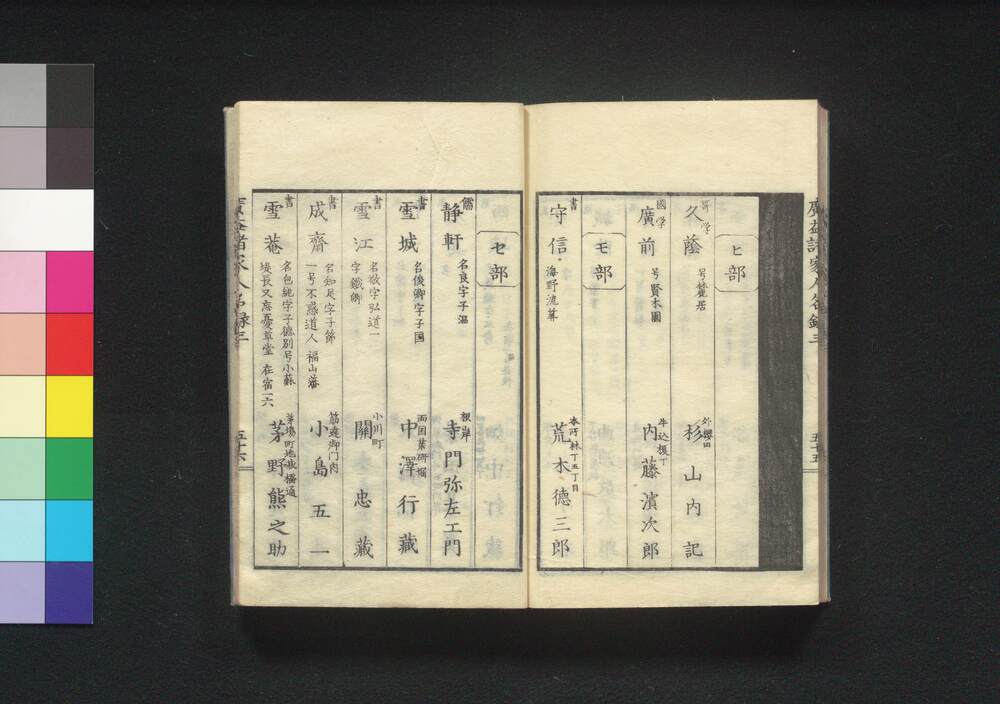 廣益諸家人名録三
五十五
ヒ部
哥学
久蔭
号鶯居
外櫻田
杉山内記
國学
廣前
号賢木園
牛込榎丁
内藤濱次郎
モ部
書
守信
海野流幕
本所林丁五丁目
荒木德三郎
セ部
儒
静軒
名良字子温
根岸
寺門弥左エ門
書
雪城
名俊卿字子国
両国薬研堀
中澤行藏
書
雪江
名 字弘道一
字鐵卿
小川町
關忠藏
書
成齋
名知足字子節
一号不惑道人 福山藩
筋違御门内
小島五一
書
雪菴
名包純字子德別号小蘇
堤長又忘憂草堂 在宿一六
茅場町地蔵橋通
茅野熊之助
廣益諸家人名録三
五十六